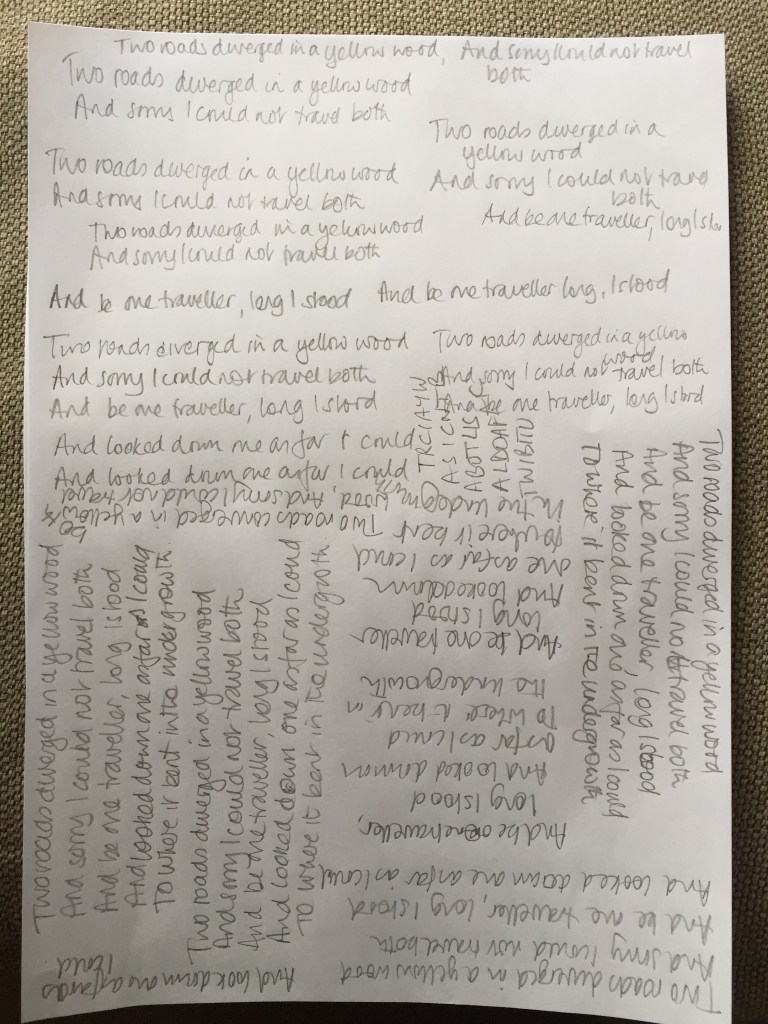 Two roads diverged in a yellow wood, And sorry I could not travel
both
Two roads diverged in a yellow wood
And sorry I could not travel both
Two roads diverged in a
yellow wood
And sorry I could not travel
both
And be one traveller, long I sto
Two roads diverged in a yellow wood
And sorry I could not travel both
Two roads diverged in a yellow wood
And sorry I could not travel both
And be one traveller, long I stood
And be one traveller long, I stood
Two roads diverged in a yellow wood
And sorry I could not travel both
And be one traveller, long I stood
And looked down one as far I could
And looked down one as far I could
Two roads diverged in a yellow
wood
And sorry I could not travel both
And be one traveller, long I stord
TRCIAYW
ASICNTB
ABOTLIS
ALDOAF
TWIBITU
Two roads diverged in a yellow wood
And sorry I could not travel both
And be one traveller, long I stood
And looked down one, as far as I could
To where it bent in the undergrowth
Two roads converged in a yellow
wood, And sorry I could not travel
both
in the undergrowth
To where it bent
And be one traveller
long I stood
And looked down
one as far as I could
Two roads diverged in a yellow wood
And sorry I could not travel both
And be one traveller, long I stood
And looked down one as far as I could
To where it bent in the undergrowth
Two roads diverged in a yellow wood
And sorry I could not travel both
And be one traveller, long I stood
And looked down one as far as I could
To where it bent in the undergrowth
And be one traveller,
long I stood
And looked down on
as far as I could
To where it bent in
the undergrowth
Two roads diverged in a yellow wood
And sorry I could not travel both
And be one traveller, long I stood
And looked down one as far as I could
And look down one as far as
I could